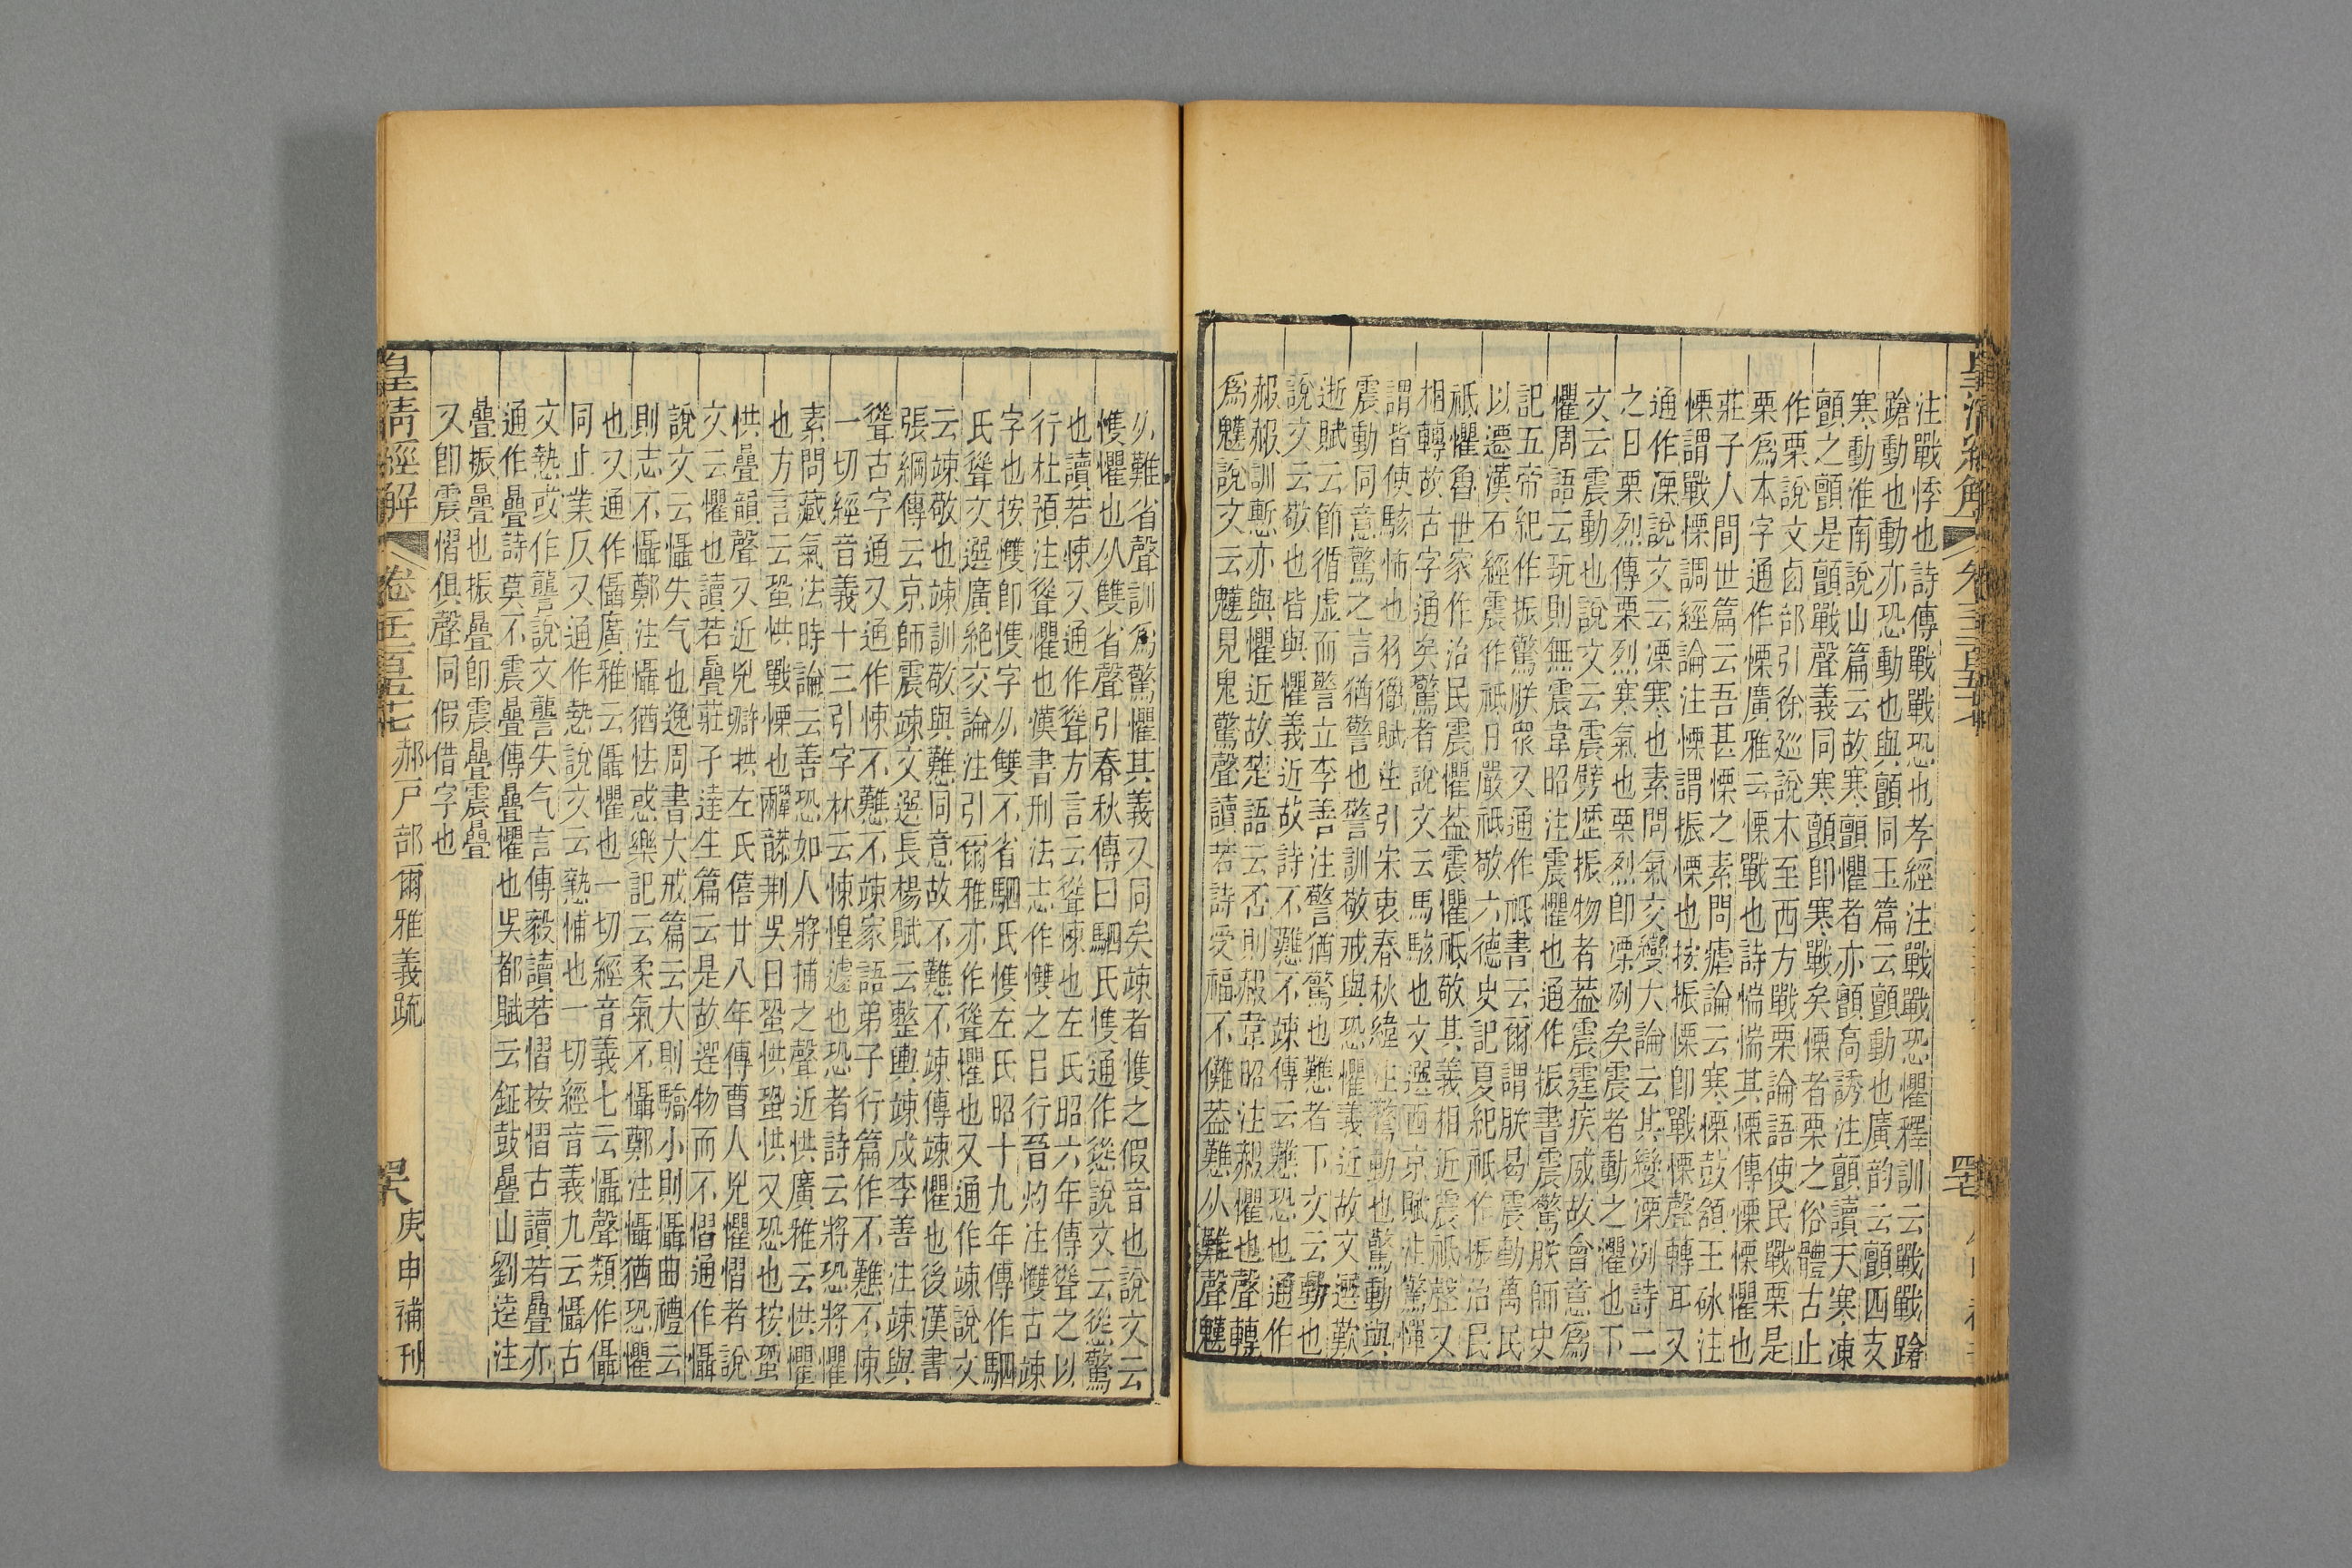 注戰悸也詩傳戰戰恐也孝經注戰戰恐懼釋訓云戰戰蹌
蹌動也動亦恐動也與顫同玉篇云顫動也廣韵云顫四支
寒動淮南說山篇云故寒顫懼者亦顫高誘注顫讀天寒凍
顫之顫是顫戰聲義同寒顫卽寒戰矣慄者栗之俗體古止
作栗說文卤部引徐巡說木至西方戰栗論語使民戰栗是
栗爲本字通作慄廣雅云慄戰也詩惴惴其慄傳慄慄懼也
莊子人間世篇云吾甚慄之素問瘧論云寒慄鼓頷王冰注
慄謂戰慄調經論注慄謂振慄也按振慄卽戰慄聲轉耳又
通作凓說文云凓寒也素問氣交變大論云其變凓冽詩二
之日栗烈傳栗烈寒氣也栗烈卽凓冽矣震者動之懼也下
文云震動也說文云震劈歷振物者葢震霆疾威故會意爲
懼周語云玩則無震韋昭注震懼也通作振書震驚朕師史
記五帝紀作振驚朕衆又通作祗書云爾謂朕曷震動萬民
以遷漢石經震作祗日嚴祗敬六德史記夏紀祗作振治民
祗懼魯世家作治民震懼葢震懼祗敬其義相近震祗聲又
相轉故古字通矣驚者說文云馬駭也文選西京賦注驚憚
謂皆使駭怖也羽獵賦注引宋衷春秋緯注驚動也驚動與
震動同意驚之言猶警也警訓敬戒與恐懼義近故文選歎
逝賦云節循虛而警立李善注警猶驚也戁者下文云動也
說文云敬也皆與懼義近故詩不戁不竦傳云戁恐也通作
赧赧訓慙亦與懼近故楚語云否則赧韋昭注赧懼也聲轉
爲魌說文云魌見鬼驚聲讀若詩受福不儺葢戁从難聲魌
皇清經解
从難省聲訓爲驚懼其義又同矣竦者愯之假音也說文云
愯懼也从雙省聲引春秋傳曰駟氏愯通作慫說文云慫驚
也讀若悚又通作聳方言云聳悚也左氏昭六年傳聳之以
行杜預注聳懼也漢書刑法志作㩳之㠯行晉灼注㩳古竦
字也按㩳卽愯字从雙不省駟氏愯左氏昭十九年傳作駟
氏聳文選廣絶交論注引爾雅亦作聳懼也又通作竦說文
云竦敬也竦訓敬與戁同意故不戁不竦傳竦懼也後漢書
張綱傳云京師震竦文選長楊賦云整輿竦戎李善注竦與
聳古字通又通作悚不戁不竦家語弟子行篇作不戁不悚
一切經音義十三引字林云悚惶遽也恐者詩云將恐將懼
素問藏氣法時論云善恐如人將捕之聲近㤨廣雅云㤨懼
也方言云蛩㤨戰慄也郭注蛩㤨又恐也按蛩
㤨疊韻聲又近兇左氏僖廿八年傳曹人兇懼慴者說
文云懼也讀若疊莊子達生篇云是故遻物而不慴通作懾
說文云懾失气也逸周書大戒篇云大則驕小則懾曲禮云
則志不懾鄭注懾猶怯惑樂記云柔氣不懾鄭注懾猶恐懼
也又通作㒤廣雅云㒤懼也一切經音義七云懾聲類作㒤
同止業反又通作慹說文云慹悑也一切經音義九云懾古
文慹或作讋說文讋失气言傅毅讀若慴按慴古讀若疊亦
通作疊詩莫不震疊傳疊懼也吳都賦云鉦鼓疊山劉逵注
疊振疊也振疊卽震疊震疊
又卽震慴俱聲同假借字也
皇清經解
卷千二百五十七
郝戸部爾雅義疏
庚申補刊